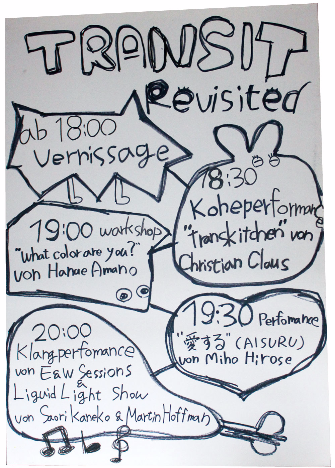 TRANSIT
Revisited
ab 18:00
Vernissage
18:30
Koheperforman
"Transkitchen" von
Christian Claus
19:00 workshop
"What color are you?"
von Hanae Amano
19:30 Perfomance
"愛する" (AISURU)
von Miho Hirose
20:00
Klangperfomance
von E&W Sessions
&
Liquid Light Show
von Saori Kaneko & Martin Hoffmann